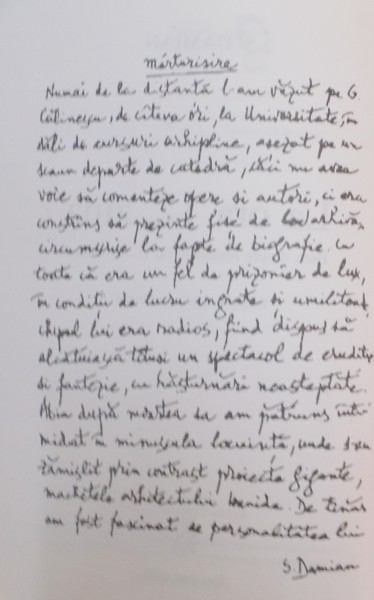 mărturisire
Numai de la distanță l-am văzut pe G.
Călinescu, de cîteva ori, la Universitate, în
săli de cursuri arhipline, așezat pe un
scaun departe de catedră, căci nu avea
voie să comenteze opere și autori, ci era
constrîns să prezinte fișe de arhivă,
circumscrise la fapte de biografie. Cu
toate că era un fel de prizonier de lux,
în condiții de lucru ingrate și umilitoare,
chipul lui era radios, fiind dispus să
alcătuiască totuși un spectacol de erudiție
și fantezie, cu răsturnări neașteptate.
Abia după moartea sa am pătruns inti-
midat în minuscula locuință, unde s-au
zămislit prin contrast proiecte gigante,
machetele arhitectului Ioanide. De tînăr
am fost fascinat de personalitatea lui
S. Damian